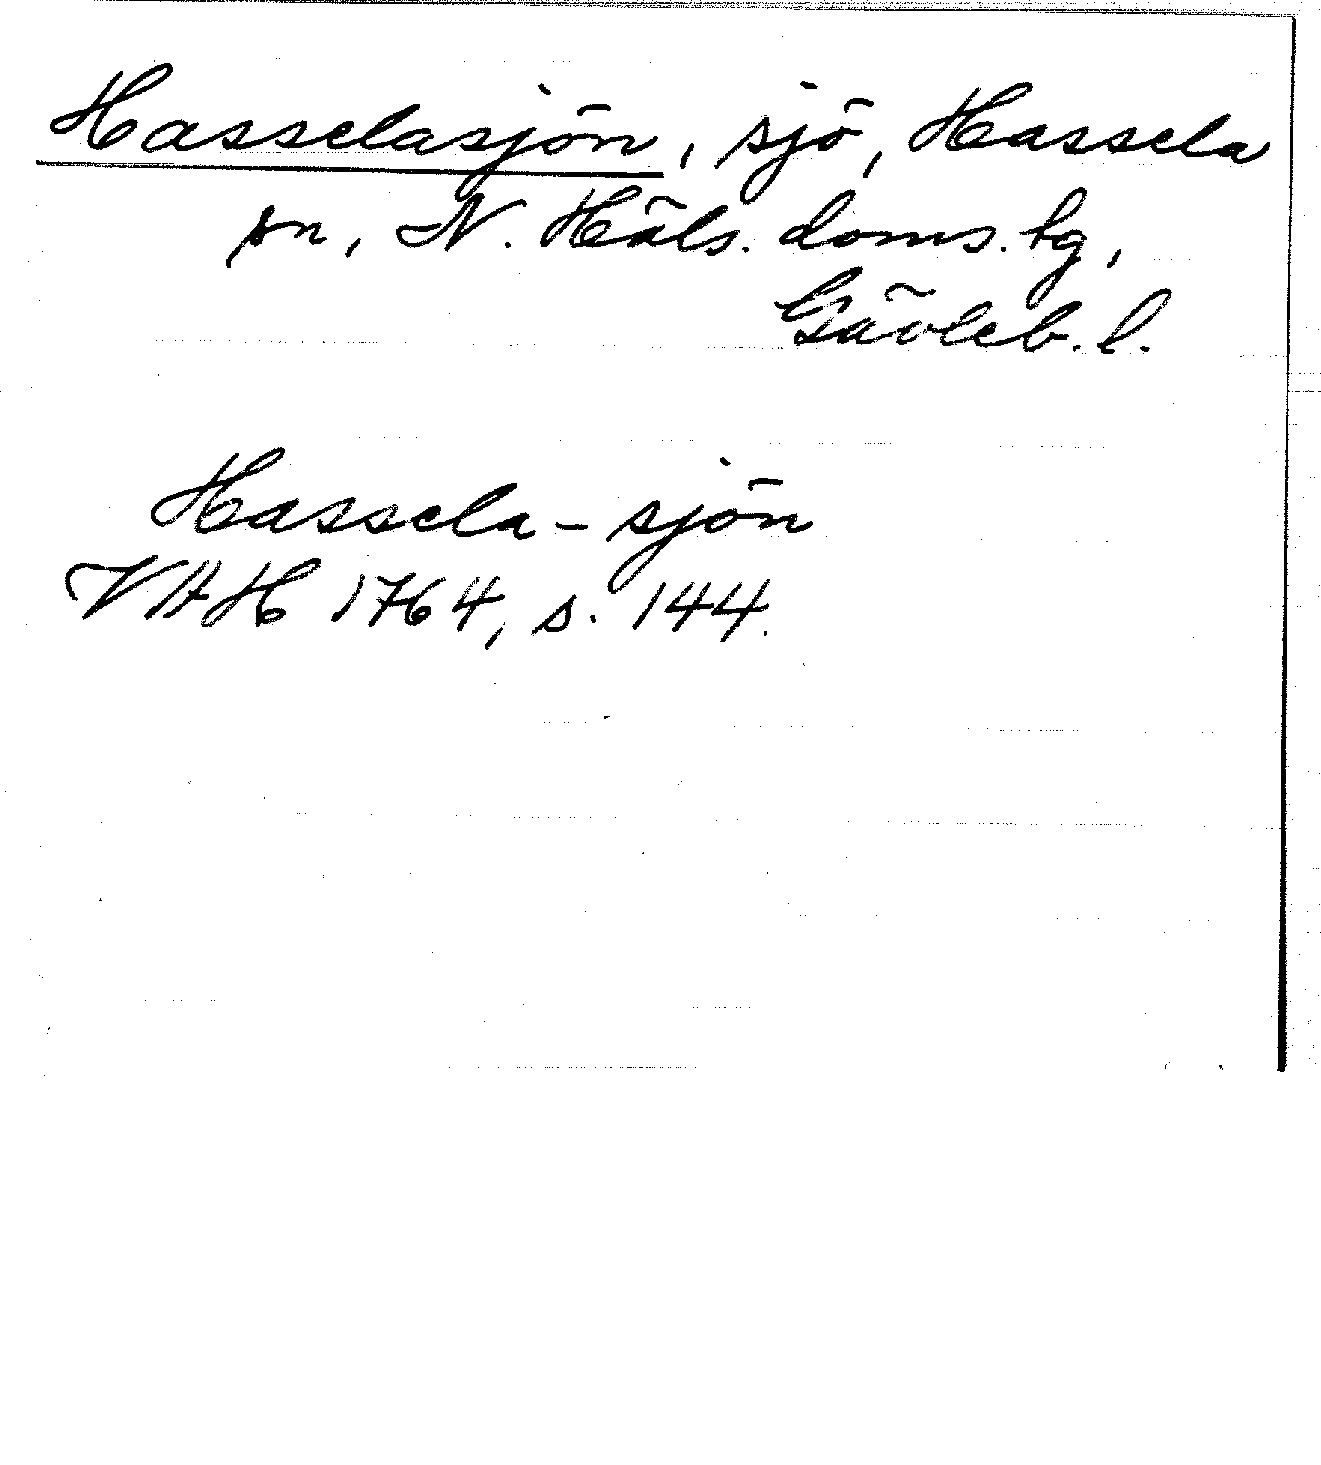 Hasselasjön, sjö, Hassela
sn, N. Häls. doms. hg,
Gävleb. l.
Hassela-sjön
VAH 1764, s. 144.